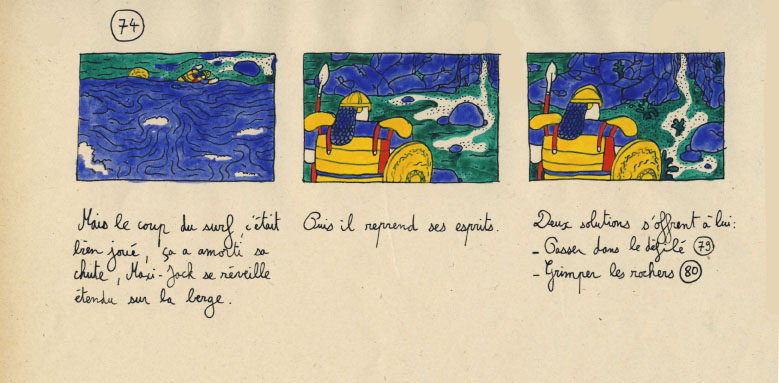 74
Mais le coup du surf, c'était
bien joué, ça a amorti sa
chute, Maxi-Jack se réveille
étendu sur la berge.
Puis il reprend ses esprits.
Deux solutions s'offrent à lui:
- Passer dans le défilé 79
- Grimper les rochers 80